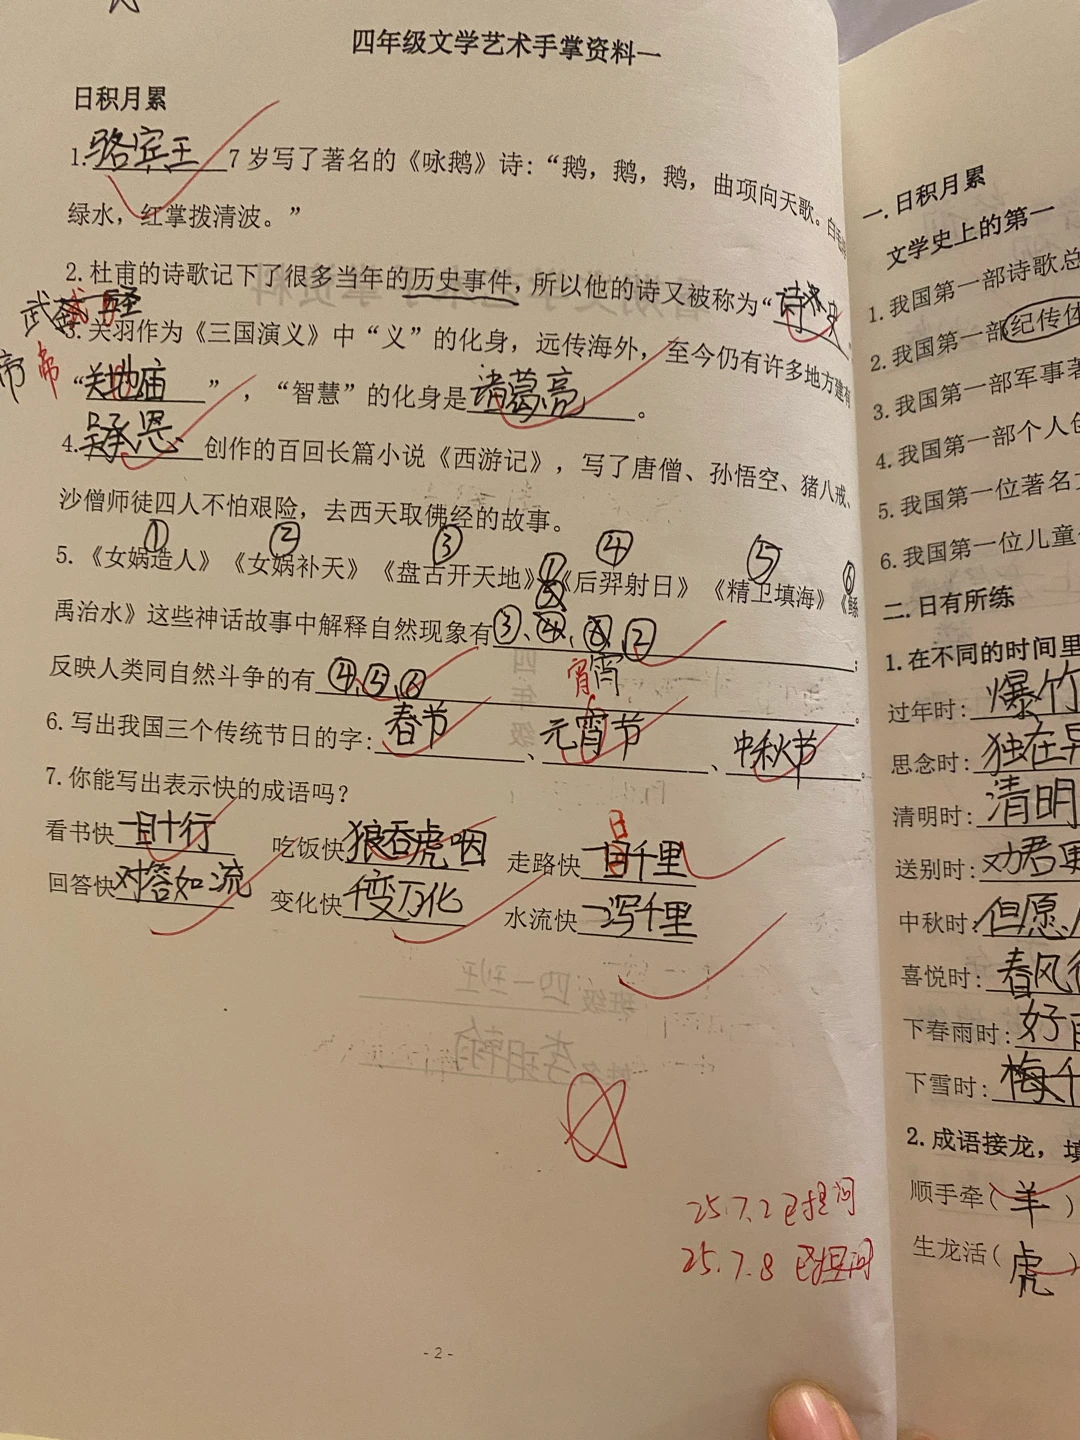 四年级文学艺术手掌资料一
日积月累
1.骆宾王7岁写了著名的《咏鹅》诗：“鹅，鹅，鹅，曲项向天歌。白毛
绿水，红掌拨清波。”
2.杜甫的诗歌记下了很多当年的历史事件，所以他的诗又被称为“诗史
3.关羽作为《三国演义》中“义”的化身，远传海外，至今仍有许多地方建有
“关地庙”，“智慧”的化身是诸葛亮。
帝 帝
4.吴承恩创作的百回长篇小说《西游记》，写了唐僧、孙悟空、猪八戒、
沙僧师徒四人不怕艰险，去西天取佛经的故事。
① ② ③ ④ ⑤ ⑥
5.《女娲造人》《女娲补天》《盘古开天地》《后羿射日》《精卫填海》《鲧
禹治水》这些神话故事中解释自然现象有③、①，②；
反映人类同自然斗争的有④,⑤,⑥。
宵 宵
6.写出我国三个传统节日的字：春节、元宵节、中秋节。
7.你能写出表示快的成语吗？
看书快一目十行 吃饭快狼吞虎咽 走路快一日千里
回答快对答如流 变化快千变万化 水流快一泻千里
班级四一班
姓名
25.7.2已提问
25.7.8已提问
-2-
一.日积月累
文学史上的第一
1.我国第一部诗歌总
2.我国第一部纪传体
3.我国第一部军事著
4.我国第一部个人创
5.我国第一位著名
6.我国第一位儿童
二.日有所练
1.在不同的时间里
过年时：爆竹
思念时：独在异
清明时：清明
送别时：劝君更
中秋时：但愿人
喜悦时：春风得
下春雨时：好雨
下雪时：梅千
2.成语接龙，填
顺手牵（羊）
生龙活（虎）